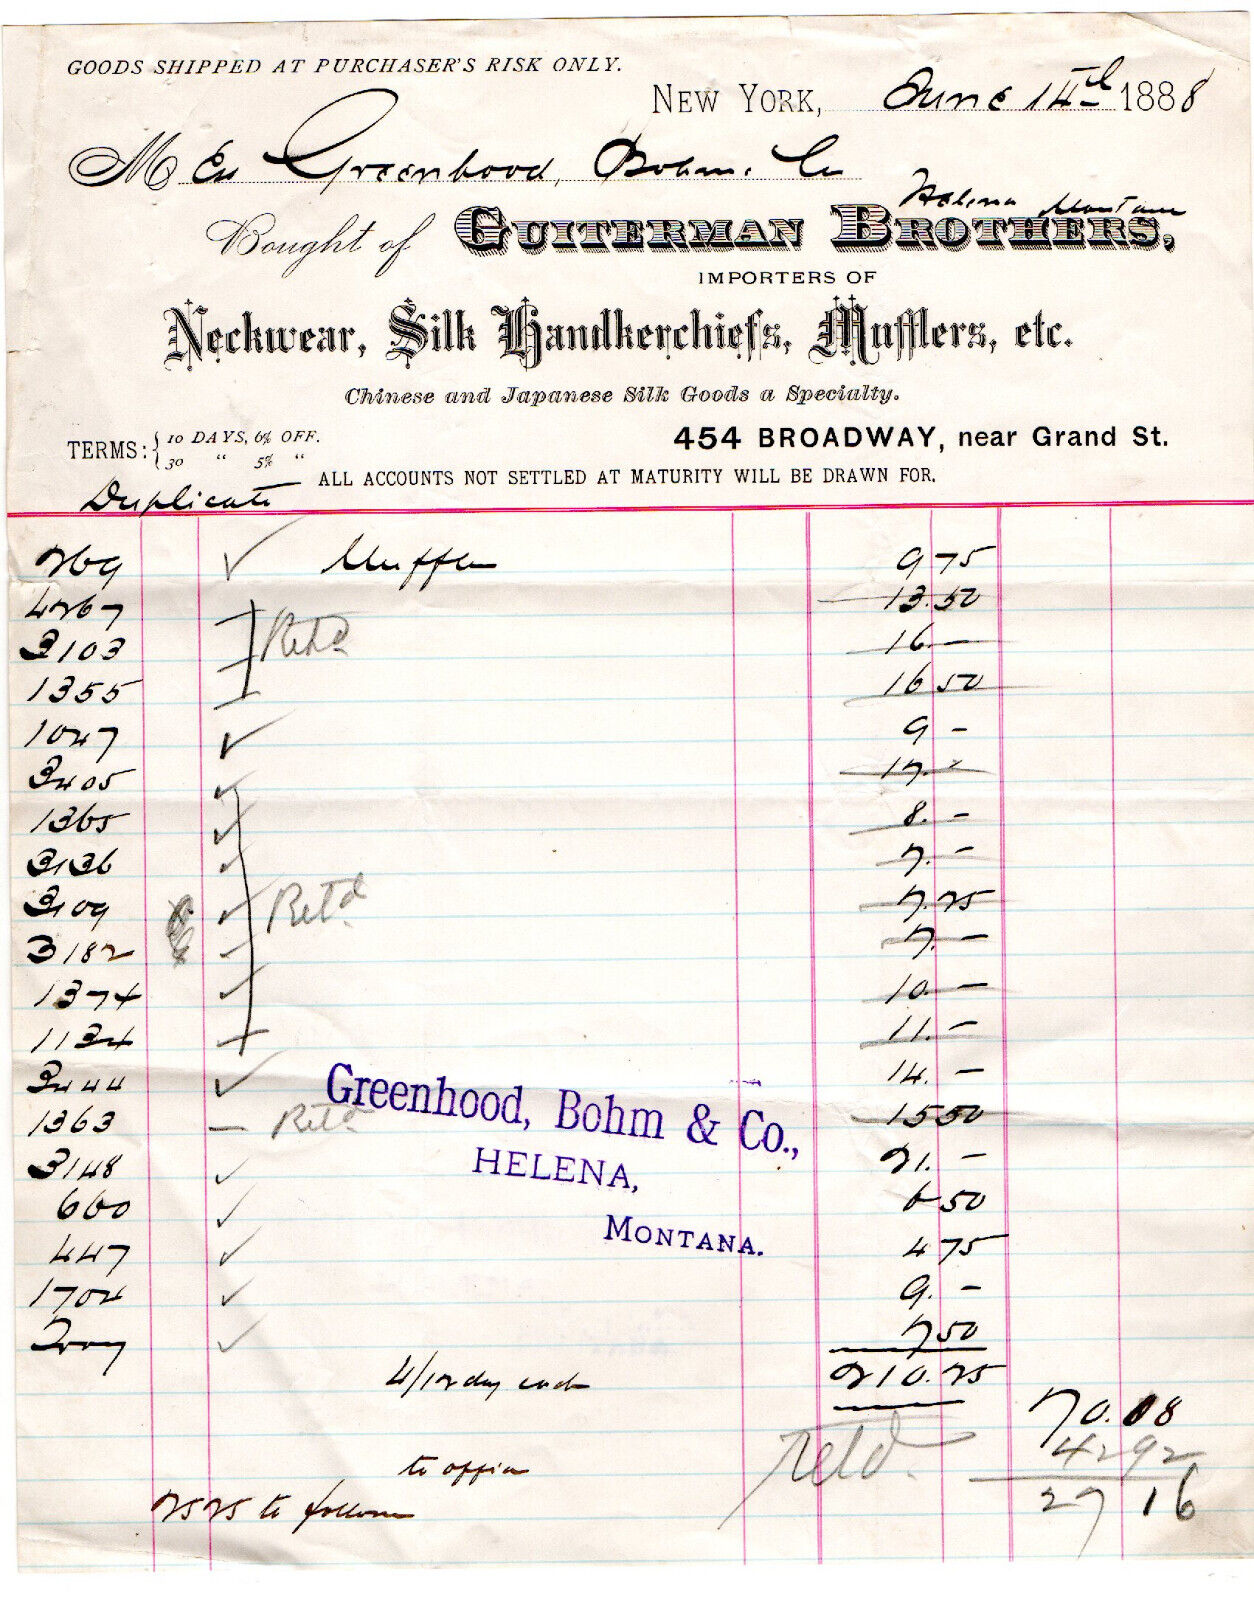 GOODS SHIPPED AT PURCHASER'S RISK ONLY.
NEW YORK, June 14th 1888
M Greenhood, Bohm. Co
Helena Montana
Bought of GUITERMAN BROTHERS,
IMPORTERS OF
Neckwear, Silk Handkerchiefs, Mufflers, etc.
Chinese and Japanese Silk Goods a Specialty.
TERMS: { 10 DAYS, 6% OFF.
30 " 5% "
454 BROADWAY, near Grand St.
ALL ACCOUNTS NOT SETTLED AT MATURITY WILL BE DRAWN FOR.
Duplicate
269 ✓ Muffler 9 75
4267 13.50
3103 Retd 16.-
1355 16 50
1047 ✓ 9 -
3405 ✓ 17.-
1365 ✓ 8.-
3136 ✓ 7.-
3109 ✓ Retd 7.25
3182 7.-
1374 ✓ 10.-
1134 11.-
3444 ✓ 14.-
1363 — Retd 15 50
3148 ✓ 21.-
660 ✓ 6 50
447 ✓ 4 75
1704 ✓ 9.-
✓ 7 50
4/12 day each 210.25
70.08
Retd. 42 92
27 16
to
2525 to follow
Greenhood, Bohm & Co.,
HELENA,
MONTANA.